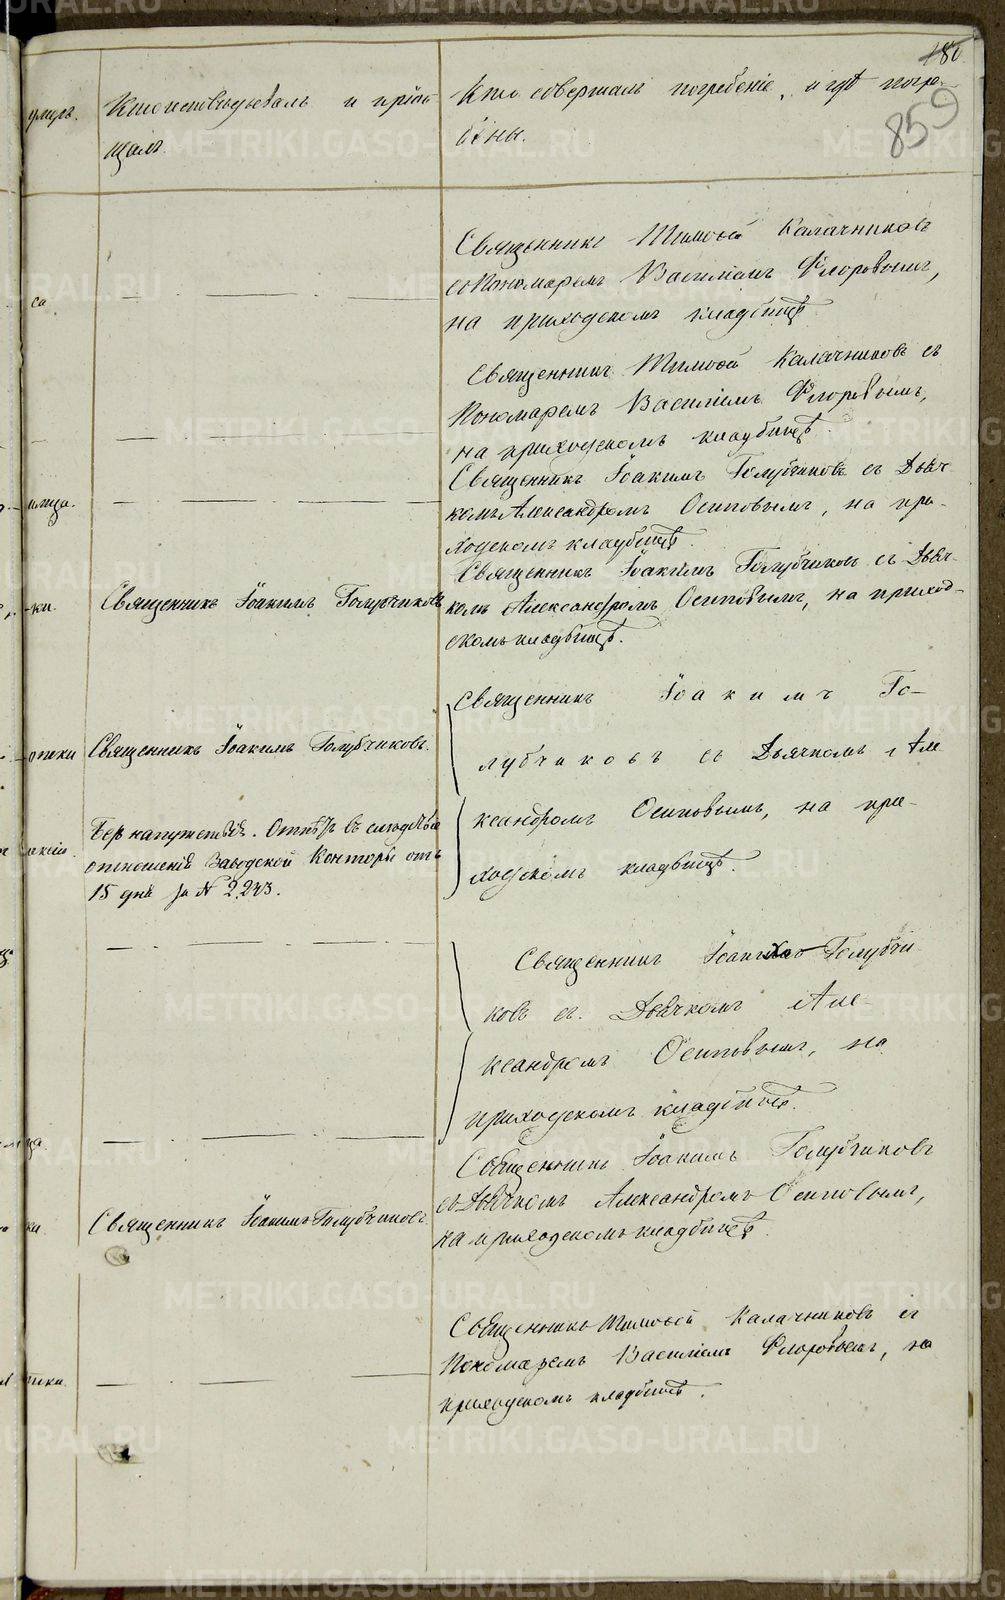 180
859
умеръ.
Кто исповѣдывалъ и пріоб
щалъ.
Кто совершалъ погребеніе, и гдѣ погре-
бены.
са
Священникъ Тимоѳей Калачниковъ
съ Пономаремъ Василіемъ Флоровымъ,
на приходскомъ кладбищѣ
Священникъ Тимоѳей Калачниковъ съ
Пономаремъ Василіемъ Флоровымъ,
на приходскомъ кладбищѣ
Священникъ Іоакимъ Голубчиковъ съ Дьяч-
комъ Александромъ Осиповымъ, на при-
ходскомъ кладбищѣ.
ки.
Священникъ Іоакимъ Голубчиковъ
Священникъ Іоакимъ Голубчиковъ съ Дьяч-
комъ Александромъ Осиповымъ, на приход-
скомъ кладбищѣ.
Священникъ Іоакимъ Голубчиковъ.
Священникъ Іоакимъ Го-
лубчиковъ съ Дьячкомъ Але
ксандромъ Осиповымъ, на при-
ходскомъ кладбищѣ.
Безъ напутствія. Отпѣтъ въ слѣдствіе
отношенія Заводской Конторы отъ
15 дня за № 2,243.
Священникъ Іоакимъ Голубчи-
ковъ съ Дьячкомъ Але-
ксандромъ Осиповымъ, на
приходскомъ кладбищѣ.
ца.
ки.
Священникъ Іоакимъ Голубчиковъ.
Священникъ Іоакимъ Голубчиковъ
съ Дьячкомъ Александромъ Осиповымъ,
на приходскомъ кладбищѣ
Священникъ Тимоѳей Калачниковъ съ
Пономаремъ Василіемъ Флоровымъ, на
приходскомъ кладбищѣ.
METRIKI.GASO-URAL.RU